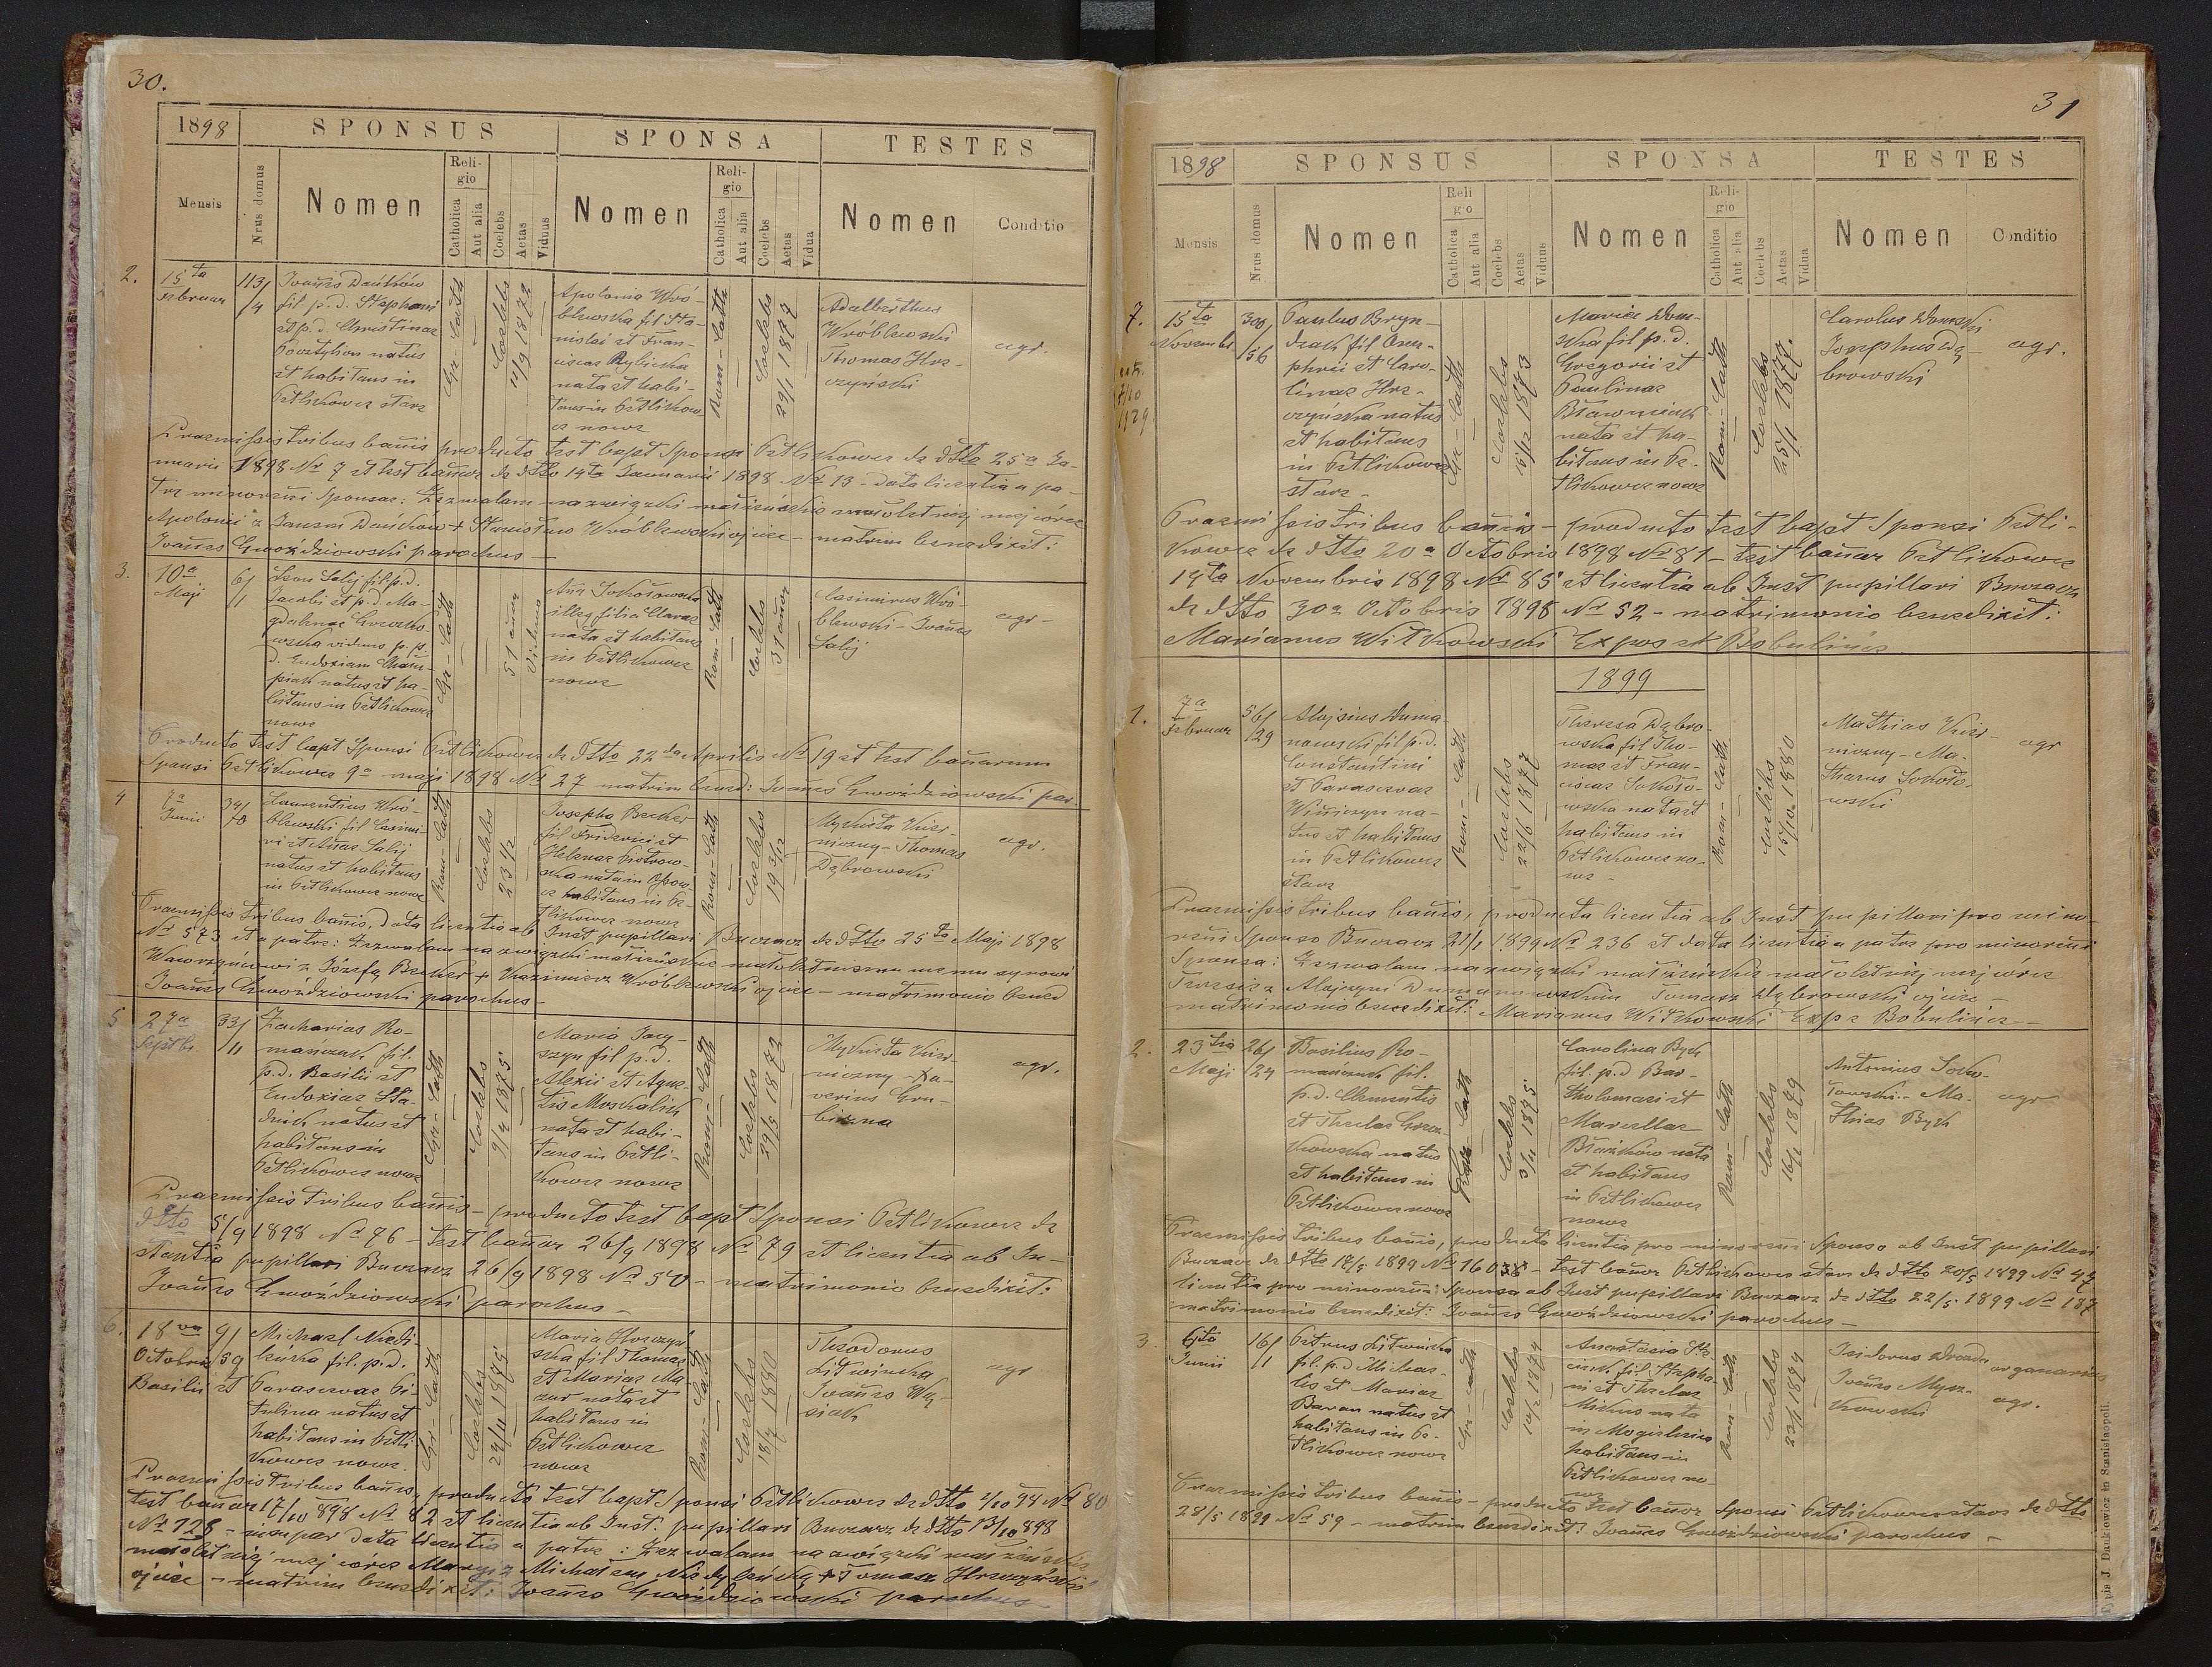 30.
1898 SPONSUS SPONSA TESTES
Mensis Nrus domus Nomen Religio Catholica Aut alia Coelebs Aetas Viduus Nomen Religio Catholica Aut alia Coelebs Aetas Vidua Nomen Conditio
2.
15ta
Februar
113/
/4
Joañes Dańków
fil. p. d. Stephani
et p. d. Christinae
natus
et habitans in
Petlikowce stare
Gr- Cath
Coelebs
1873
Apolonia Wró-
blewska fil Sta-
nislai et Fran-
ciscae Rylicka
nata et habi-
tans in Petlikow
ce nowe
Rom- Cath
Coelebs
29/1 1877
Adalbertus
Wróblewski
Thomas Hor-
czyński
agr.
Praemissis tribus bañis producto test bapt Sponsi Petlikowce de dtto 25a Ja-
nuarii 1898 No 7 et test bañor de dtto 14ta Januarii 1898 No 13 - data licentia a pa-
tre minoreñi Sponsae: Zezwalam na związki małżeńskie małoletniej mej córce
Apolonii z Janem Dańków + Stanisław Wróblewski ojciec - matrim benedixit:
Joañes Gwoździowski parochus -
3.
10a
Maji
6/
/1
Leon Salij fil. p. d.
Jacobi et p. d. Ma-
gdalenae
wska viduus p. p.
d. Eudoxiam
piak natus et ha-
bitans in Petlikowce
nowe
Gr- Cath
51 annor
Viduus
Aña Sokołowska
illeg filia Clarae
nata et habitans
in Petlikowce
nowe
Rom- Cath
Coelebs
31 añor
Casimirus Wró-
blewski - Joañes
Salij
agr-
Producto test bapt Sponsi Petlikowce de dtto 22da Aprilis No 19 et test bañorum
Sponsi Petlikowce 9a maji 1898 No 27 matrim bened: Joañes Gwoździowski par.
4
7a
Junii
34/
/70
Laurentius Wró-
blewski fil Casimi-
ri et Añae Salij
natus et habitans
in Petlikowce nowe
Rom- Cath
Coelebs
23 1/2
Josepha Becker
fil Friderici et
Helenae Piotrow-
ska nata in Ossow-
ce habitans in Pe-
tlikowce nowe
Rom- Cath
Coelebs
19 3/12
Mykieta Kier-
niczny - Thomas
Dąbrowski
agr.
Praemissis tribus bañis, data licentia ab Inst pupillari Buczacz de dtto 25to Maji 1898
No 573 et a patre: Zezwalam na związki małżeńskie małoletniemu memu synowi
Wawrzyńcowi z Józefą Becker + Kazimierz Wróblewski ojciec - matrimonio bened
Joañes Gwoździowski parochus -
5
27a
Septbr
33/
/11
Zacharias Ro-
mańczuk fil.
p. d. Basilii et
Eudoxiae Sta-
dnik natus et
habitans in
Petlikowce nowe
Gr- Cath
Coelebs
9/4 1875
Maria Jacy-
szyn fil p. d.
Alexii et Agne-
tis Moskalik
nata et habi-
tans in Petli-
kowce nowe
Rom- Cath
Coelebs
29/5 1873
Mykieta Kier-
niczny - Xa-
verius Gru-
bizna
agr.
Praemissis tribus bañis - producto test bapt Sponsi Petlikowce de
dtto 5/9 1898 No 76 - test bañor 26/9 1898 No 79 et licentia ab In-
stantia pupillari Buczacz 26/9 1898 No 50 - matrimonio benedixit:
Joañes Gwoździowski parochus -
6.
18va
Octobris
9/
/39
Michael Niedź-
fil. p. d.
Basilii et Parascevae Pi-
tulina natus et
habitans in Petli-
kowce nowe
Gr- Cath
Coelebs
22/11 1875
Maria Horczyń
ska fil Thomae
et Mariae Ma-
zur nata et
habitans in
Petlikowce
nowe
Rom- Cath
Coelebs
18/7 1880
Theodorus
Litwinka
Joañes Wę-
siak
agr
Praemissis tribus bañis, producto test bapt Sponsi Petlikowce de dtto 1/10 98 No 80
test bañor 17/10 898 No 82 et licentia ab Inst. pupillari Buczacz de dtto 13/10 898
No 728 - data licentia a patre: Zezwalam na związki małżeńskie
małoletniej mej córce Maryi z Michałem + Tomasz Horczyński
ojciec - matrim benedixit: Joañes Gwoździowski parochus
31
1898 SPONSUS SPONSA TESTES
Mensis Nrus domus Nomen Religio Catholica Aut alia Coelebs Aetas Viduus Nomen Religio Catholica Aut alia Coelebs Aetas Vidua Nomen Conditio
7.
15ta
Novembr
extr.
7/10
1929
300/
/56
Paulus Bryn-
dzak fil Onu-
phrii et Caro-
linae Hor-
czyńska natus
et habitans
in Petlikowce
stare -
Gr- Cath
Coelebs
16/12 1873
Maria Dom-
ska fil p. d.
Gregorii et
Paulinae
nata et ha-
bitans in Pe-
tlikowce nowe
Rom- Cath
Coelebs
25/1 1877.
Carolus Domski
Josephus Dą-
browski
agr.
Praemissis tribus bañis - producto test bapt Sponsi Petli-
kowce de dtto 20a Octobris 1898 No 81 - test bañor Petlikowce
14ta Novembris 1898 No 85 et licentia ab Inst pupillari Buczacz
de dtto 30a Octobris 1898 No 52 - matrimonio benedixit:
Marianus Witkowski Expos et Bobulińce
1899
1.
7a
Februar
56/
/29
Alojsius Duma-
nowski fil p. d.
Constantini
et Parascevae
na-
tus et habitans
in Petlikowce
stare
Rom- Cath
Coelebs
22/6 1877
Theresa Dąbro-
wska fil Tho-
mae et Fran-
ciscae Sokoło-
wska nata et
habitans in
Petlikowce no-
we -
Rom- Cath
Coelebs
15/10 1880
Mathias Kier-
niczny - Ma-
thaeus Sokoło-
wski
agr
Praemissis tribus bañis, producta licentia ab Inst pupillari pro mino-
reñi Sponso Buczacz 21/1 1899 No 236 et data licentia a patre pro minoreñi
Sponsa: Zezwalam na związki małżeńskie małoletniej mej córce
Teresie z Alojzym Dumanowskim Tomasz Dąbrowski ojciec -
matrimonio benedixit: Marianus Witkowski Exps Bobulińce
2.
23tia
Maji
26/
/24
Basilius Ro-
mańczuk fil.
p. d. Clementis
et Theclae Grosz-
kowska natus
et habitans in
Petlikowce nowe
Cath
Coelebs
3/11 1875
Carolina Byk
fil. p. d Bar-
tholomaei et
Marcellae
Błażków nata
et habitans
in Petlikowce
nowe
Rom- Cath
Coelebs
16/1 1879
Antonius Soko-
łowski - Ma-
thias Byk
agr
Praemissis tribus bañis, producta licentia pro minoreñi Sponso ab Inst pupillari
Buczacz de dtto 17/5 1899 - test bañor Petlikowce stare de dtto 20/5 1899 No 47
licentia pro minoreñi Sponsa ab Inst pupillari Buczacz de dtto 22/5 1899 No 187
matrimonio benedixit: Joañes Gwoździowski parochus -
3.
6to
Junii
16/
/1
Petrus Litwinka
fil. p. d Michae-
lis et Mariae
Baran natus et
habitans in Pe-
tlikowce nowe
Gr- Cath
Coelebs
10/2 1874
Anastasia
fil. Stepha-
ni et Theclae
Mikus nata
in Mogielnica
habitans in
Petlikowce no
we
Rom- Cath
Coelebs
Isidorus Drozda organarius
Joañes Mysz-
kowski
agr.
Praemissis tribus bañis - producto test bañor Sponsi Petlikowce stare de dtto
28/5 1899 No 59 - matrim benedixit: Joañes Gwoździowski parochus -
Typis J. Dankiewicz to Stanislaopoli.